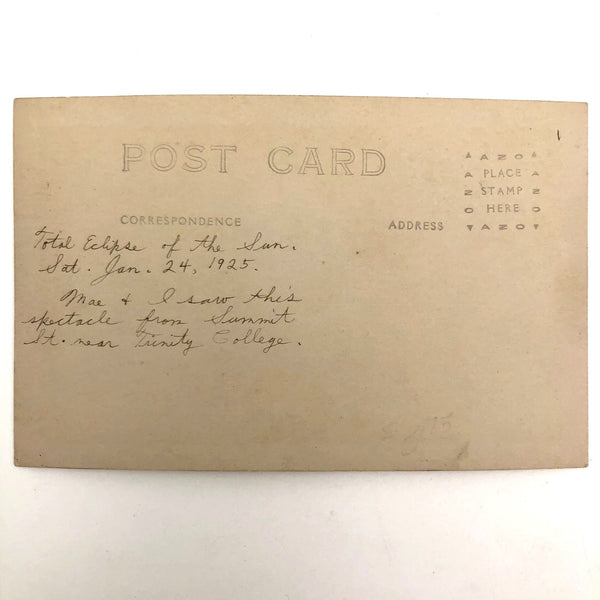 POST CARD
CORRESPONDENCE
ADDRESS
AZO
PLACE
STAMP
HERE
AZO
AZO
AZO
1
Total Eclipse of the Sun.
Sat. Jan. 24, 1925.
Mae & I saw this
spectacle from Summit
St. near Trinity College.